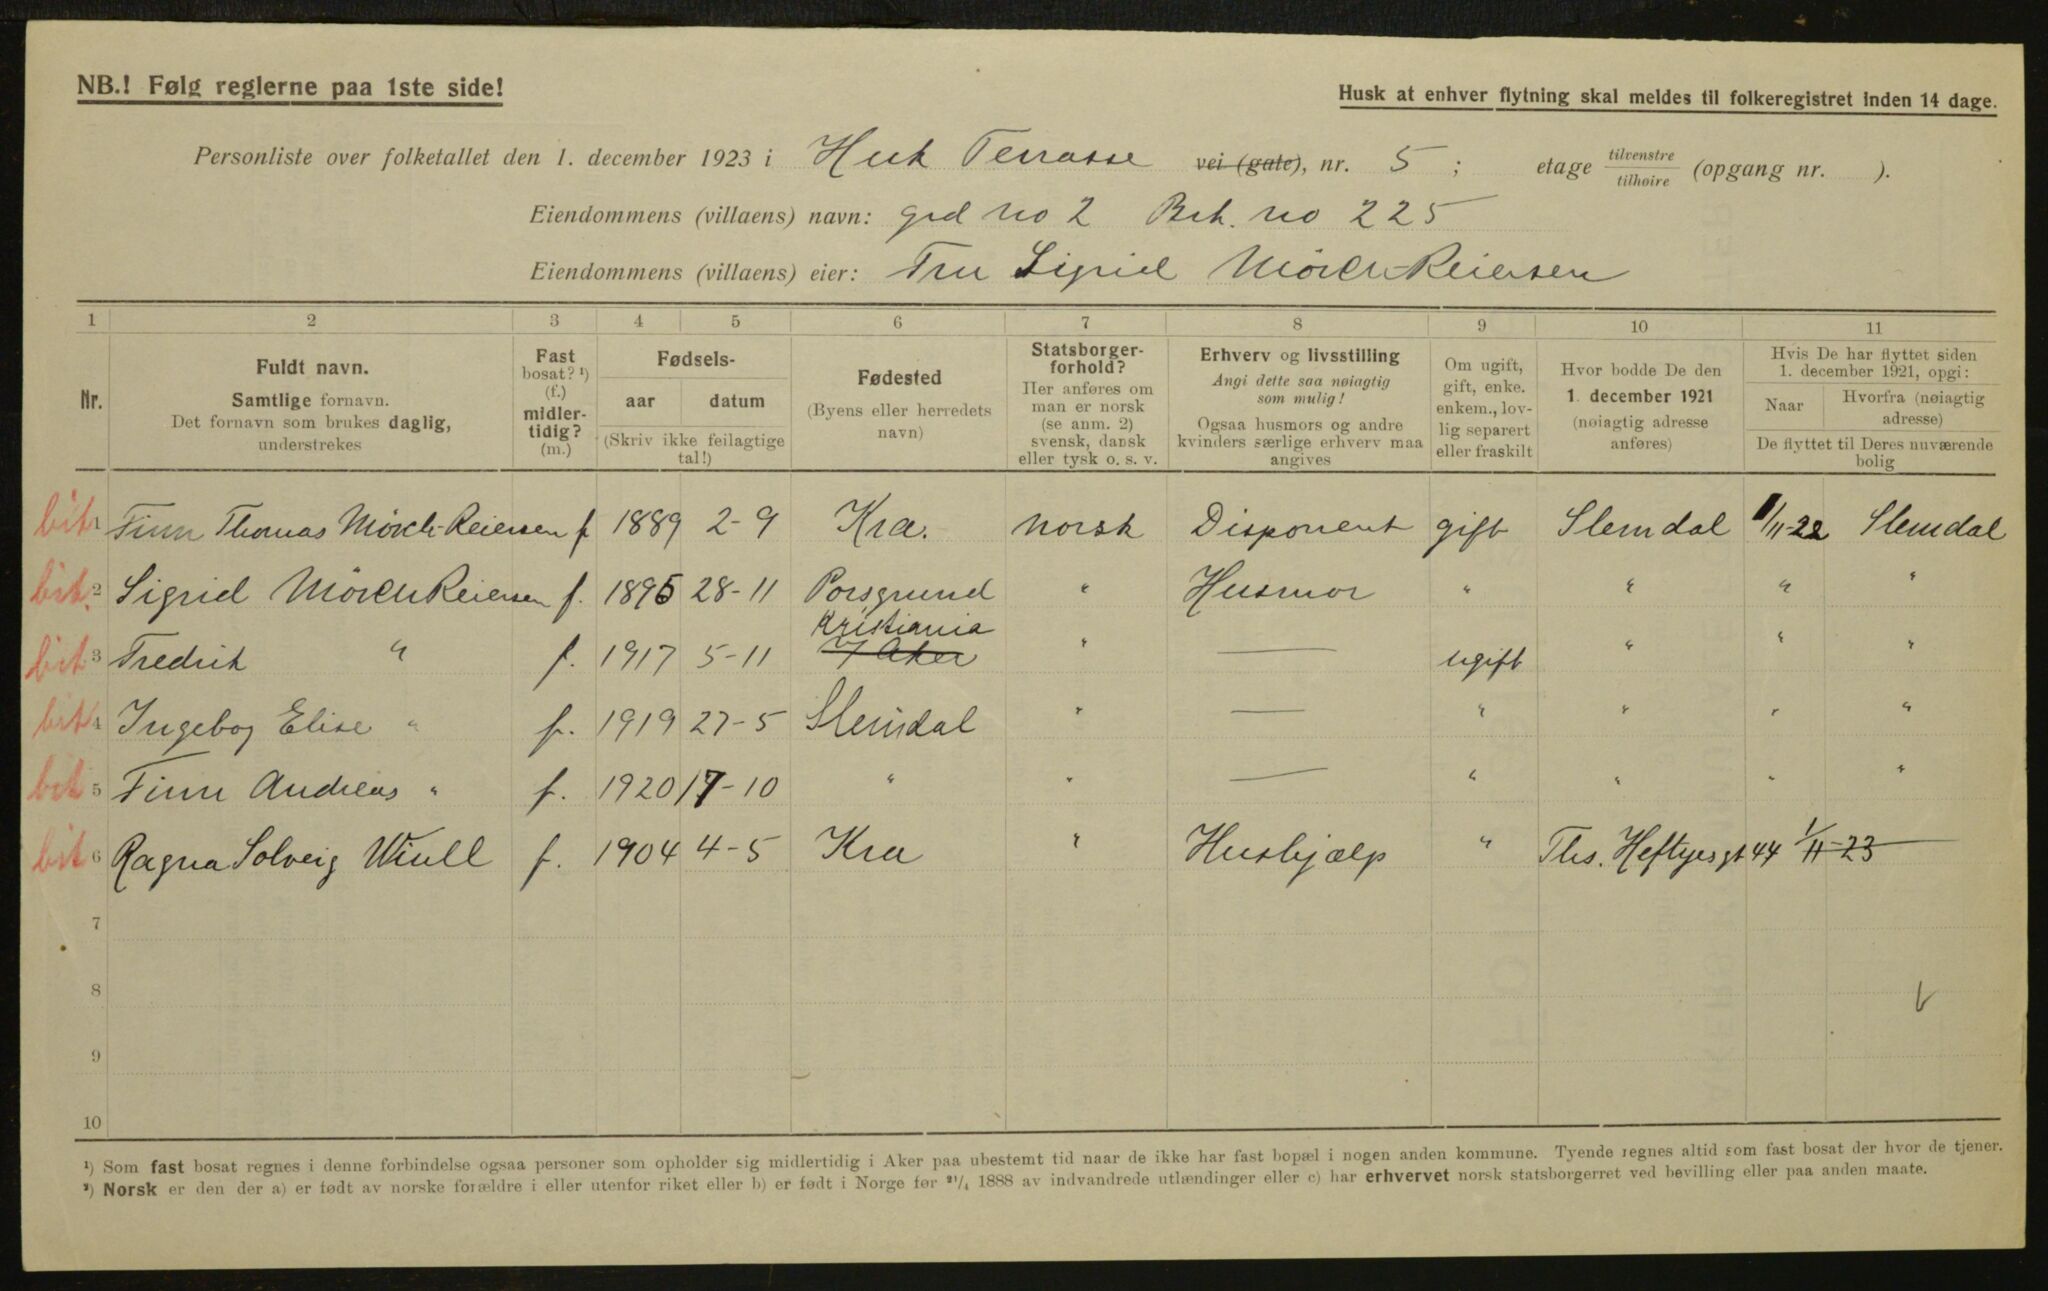 NB.! Følg reglerne paa 1ste side!
Husk at enhver flytning skal meldes til folkeregistret inden 14 dage.
Personliste over folketallet den 1. december 1923 i Huk Terrasse vei (gate), nr. 5 ; etage tilvenstre tilhøire (opgang nr. ).
Eiendommens (villaens) navn: grd no 2 Brk. no 225
Eiendommens (villaens) eier: Fru Sigrid Mörch-Reiersen
1 2 3 4 5 6 7 8 9 10 11
Nr.
Fuldt navn.
Samtlige fornavn.
Det fornavn som brukes daglig,
understrekes
Fast
bosat? ¹)
(f.)
midler-
tidig?
(m.)
Fødsels-
aar datum
(Skriv ikke feilagtige
tal!)
Fødested
(Byens eller herredets
navn)
Statsborger-
forhold?
Her anføres om
man er norsk
(se anm. 2)
svensk, dansk
eller tysk o. s. v.
Erhverv og livsstilling
Angi dette saa nøiagtig
som mulig!
Ogsaa husmors og andre
kvinders særlige erhverv maa
angives
Om ugift,
gift, enke.
enkem., lov-
lig separert
eller fraskilt
Hvor bodde De den
1. december 1921
(nøiagtig adresse
anføres)
Hvis De har flyttet siden
1. december 1921, opgi:
Naar Hvorfra (nøiagtig
adresse)
De flyttet til Deres nuværende
bolig
bit 1 Finn Thomas Mörch-Reiersen f 1889 2-9 Kra. norsk Disponent gift Slemdal 1/11-22 Slemdal
bit. 2 Sigrid Mörch Reiersen f. 1895 28-11 Porsgrund " Husmor " " " "
Kristiania
bit 3 Fredrik " f. 1917 5-11 V Aker " — ugift " " "
bit 4 Ingebog Elise " f. 1919 27-5 Slemdal " — " " " "
bit 5 Finn Andreas " f. 1920 17-10 " " — " " " "
bit 6 Ragna Solveig Wiull f. 1904 4-5 Kra " Hushjælp " Ths. Heftyesgt 44 1/11-23
7
8
9
10
¹) Som fast bosat regnes i denne forbindelse ogsaa personer som opholder sig midlertidig i Aker paa ubestemt tid naar de ikke har fast bopæl i nogen anden kommune. Tyende regnes altid som fast bosat der hvor de tjener.
²) Norsk er den der a) er født av norske forældre i eller utenfor riket eller b) er født i Norge før ²¹/₄ 1888 av indvandrede utlændinger eller c) har erhvervet norsk statsborgerret ved bevilling eller paa anden maate.